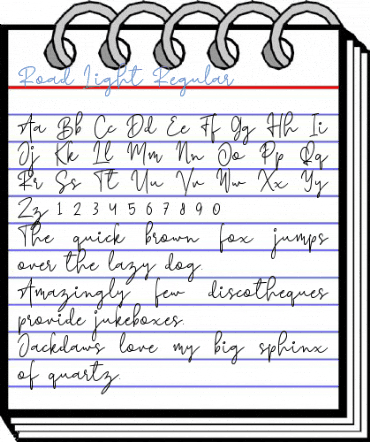 Road Light Regular
Aa Bb Cc Dd Ee Ff Gg Hh Ii
Jj Kk Ll Mm Nn Oo Pp Qq
Rr Ss Tt Uu Vv Ww Xx Yy
Zz 1 2 3 4 5 6 7 8 9 0
The quick brown fox jumps
over the lazy dog.
Amazingly few discotheques
provide jukeboxes.
Jackdaws love my big sphinx
of quartz.